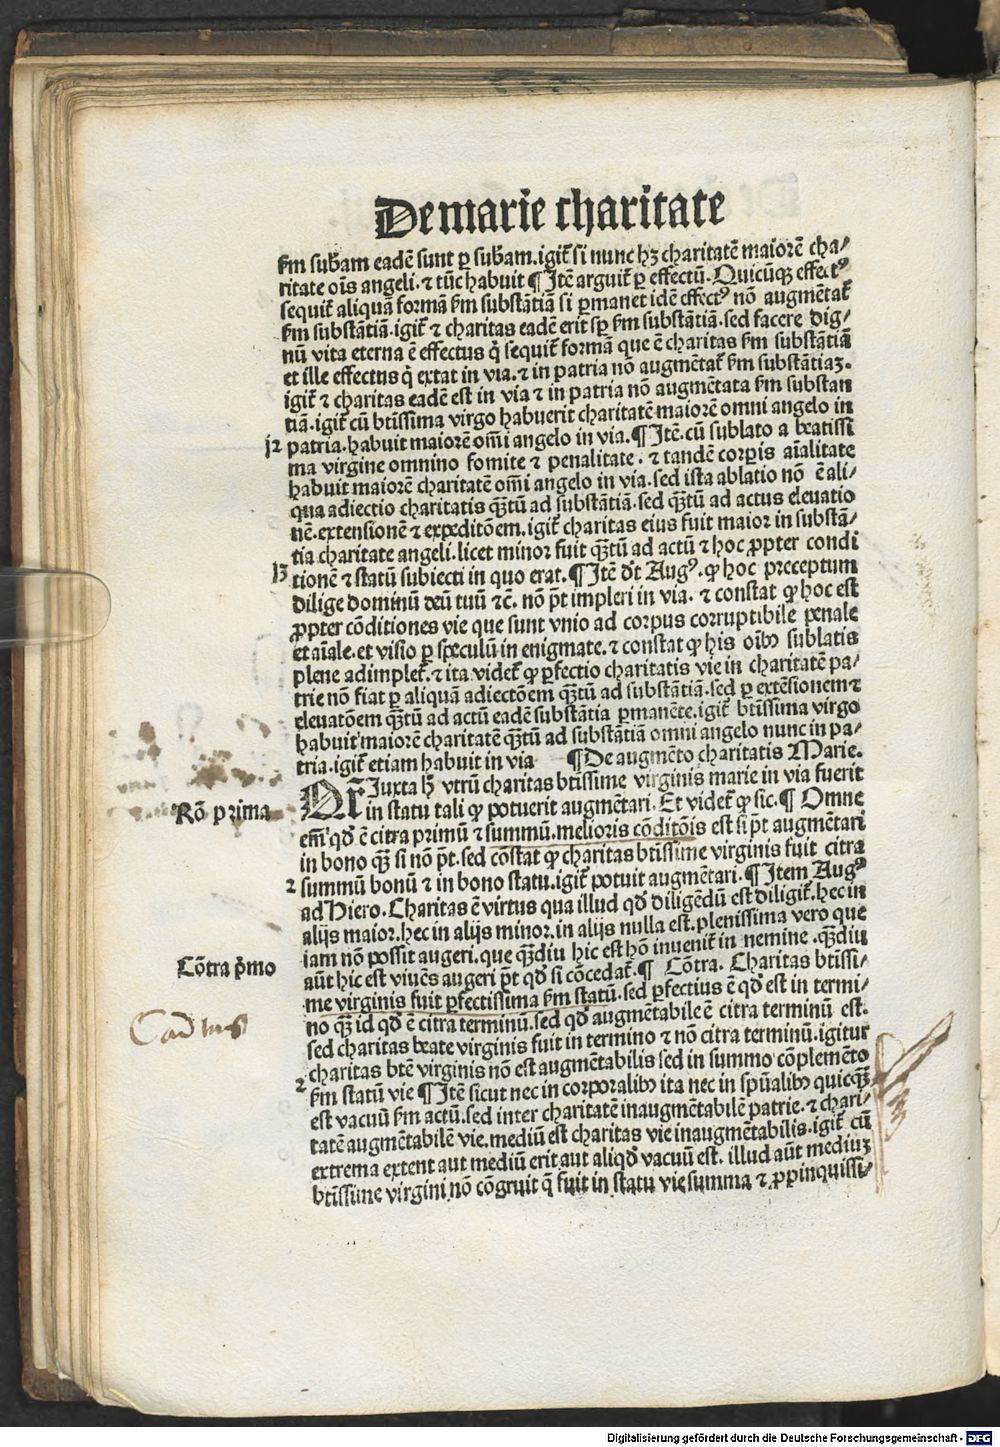 De marie charitate
ẜm sub̄am eadē sunt ꝑ sub̄am. igit̄ si nunc hꝫ charitatē maiorē cha⸗
ritate oīs angeli. ⁊ tūc habuit ¶ Itē arguit̄ ꝑ effectū. Quicūqꝫ effectꝰ
sequit̄ aliquā formā ẜm substātiā si ꝑmanet idē effectꝰ nō augmētat̄
ẜm substātiā. igit̄ ⁊ charitas eadē erit sꝑ ẜm substātiā. sed facere dig⸗
nū vita eterna ē effectus q̄ sequit̄ formā que ē charitas ẜm substātiā
et ille effectus q̄ extat in via. ⁊ in patria nō augmētat̄ ẜm substātiaꝫ.
igit̄ ⁊ charitas eadē est in via ⁊ in patria nō augmētata ẜm substan
tiā. igit̄ cū btīssima virgo habuerit charitatē maiorē omni angelo in
patria. habuit maiorē om̄i angelo in via. ¶ Itē. cū sublato a beatissi
ma virgine omnino fomite ⁊ penalitate. ⁊ tandē corꝑis aīalitate
habuit maiorē charitatē om̄i angelo in via. sed ista ablatio nō ē ali⸗
qua adiectio charitatis qꝫ̄tū ad substātiā. sed qꝫ̄tū ad actus eleuatio
nē. extensionē ⁊ expeditōem. igit̄ charitas eius fuit maior in substā⸗
tia charitate angeli. licet minor fuit qꝫ̄tū ad actū ⁊ hoc ꝓpter condi
tionē ⁊ statū subiecti in quo erat. ¶ Itē dt̄ Augꝰ. ꝙ hoc preceptum
dilige dominū deū tuū ⁊c̄. nō pt̄ impleri in via. ⁊ constat ꝙ hoc est
ꝓpter cōditiones vie que sunt vnio ad corpus corruptibile penale
et aīale. et visio ꝑ speculū in enigmate. ⁊ constat ꝙ his oībꝫ sublatis
plene adimplet̄. ⁊ ita videt̄ ꝙ ꝑfectio charitatis vie in charitatē pa⸗
trie nō fiat ꝑ aliquā adiectōem qꝫ̄tū ad substātiā. sed ꝑ extēsionem ⁊
eleuatōem qꝫ̄tū ad actū eadē substātia ꝑmanēte. igit̄ btīssima virgo
habuit maiorē charitatē qꝫ̄tū ad substātiā omni angelo nunc in pa⸗
tria. igit̄ etiam habuit in via ¶ De augmēto charitatis Marie.
Qr̄ Iuxta h̄ vtrū charitas btīssime virginis marie in via fuerit
Rō prima
in statu tali ꝙ potuerit augmētari. Et videt̄ ꝙ sic. ¶ Omne
em̄ qd̄ ē citra primū ⁊ summū. melioris cōditōis est si pt̄ augmētari
in bono qꝫ̄ si nō pt̄. sed cōstat ꝙ charitas btīssime virginis fuit citra
2 summū bonū ⁊ in bono statu. igit̄ potuit augmētari. ¶ Item Augꝰ
ad Hiero. Charitas ē virtus qua illud qd̄ diligēdū est diligit̄. hec in
alijs maior. hec in alijs minor. in alijs nulla est. plenissima vero que
iam nō possit augeri. que qꝫ̄diu hic est hō inuenit̄ in nemine. qꝫ̄diu
Cōtra pͥmo
aūt hic est viuēs augeri pt̄ qd̄ si cōcedat̄. ¶ Cōtra. Charitas btīssi⸗
me virginis fuit ꝑfectissima ẜm statū. sed ꝑfectius ē qd̄ est in termi⸗
no qꝫ̄ id qd̄ ē citra terminū. sed qd̄ augmētabile ē citra terminū est.
sed charitas beate virginis fuit in termino ⁊ nō citra terminū. igitur
charitas btē virginis nō est augmētabilis sed in summo cōplemēto
2 ẜm statū vie ¶ Itē sicut nec in corporalibꝫ ita nec in spūalibꝫ quicqꝫ̄
est vacuū ẜm actū. sed inter charitatē inaugmētabilē patrie. ⁊ chari⸗
tatē augmētabilē vie. mediū est charitas vie inaugmētabilis. igit̄ cū
extrema extent aut mediū erit aut aliqd̄ vacuū est. illud aūt mediuꝫ
btīssime virgini nō cōgruit q̄ fuit in statu vie summa ⁊ ꝓpinquissi⸗
Digitalisierung gefördert durch die Deutsche Forschungsgemeinschaft - DFG